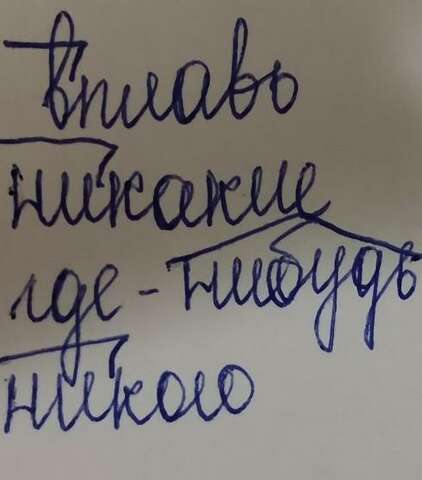 вплавь
никакие
где-нибудь
никого